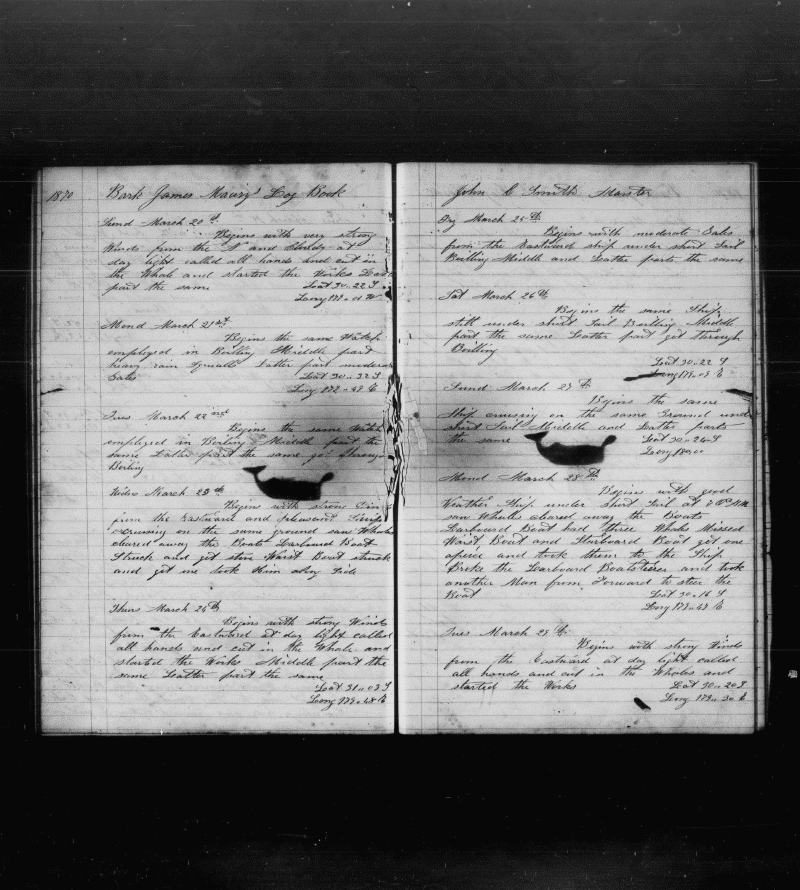 1870 Bark James Maury's Log Book
Sund March 20th
Begins with very strong
Winds from the N and Cloudy at
day light called all hands and cut in
the Whale and started the Works Latter
part the same Lat 30..22 S
Long 179..01 W
Mond March 21st
Begins the same Watch
employed in Boiling Middle part
heavy rain squalls Latter part moderate
Gales Lat 30..32 S
Long 179..49 E
Tues March 22nd
Begins the same Watch
employed in Boiling Middle part the
same Latter part the same got through
Boiling
Wedns March 23th
Begins with strong Winds
from the Eastward and pleasant Ship
Cruising on the same ground saw Whales
cleared away the Boats Larboard Boat
Struck and got stove Waist Boat struck
and got one took Him along Side
Thurs March 24th
Begins with strong Winds
from the Eastward at day light called
all hands and cut in the Whale and
started the Works Middle part the
same Latter part the same
Lat 31..03 S
Long 179..48 E
John C Smith Master
Fry March 25th
Begins with moderate Gales
from the Eastward ship under short Sail
Boiling Middle and Latter parts the same
Sat March 26th
Begins the same Ship
still under short Sail Boiling Middle
part the same Latter part got through
Boiling
Lat 30..22 S
Long 179..09 E
Sund March 27th
Begins the same
Ship cruising on the same Ground under
short Sail Middle and Latter parts
the same Lat 30..26 S
Long 180..00
Mond March 28th
Begins with good
Weather Ship under Short Sail at PM
saw Whales cleared away the Boats
Larboard Boat had three Whales Missed
Waist Boat and Starboard Boat got one
apiece and took them to the Ship
Broke the Larboard Boatsteerer and took
another Man from Forward to steer the
Boat Lat 30..16 S
Long 179..48 E
Tues March 29th
Begins with strong Winds
from the Eastward at day light called
all hands and cut in the Whales and
started the Works Lat 30..20 S
Long 179..30 E